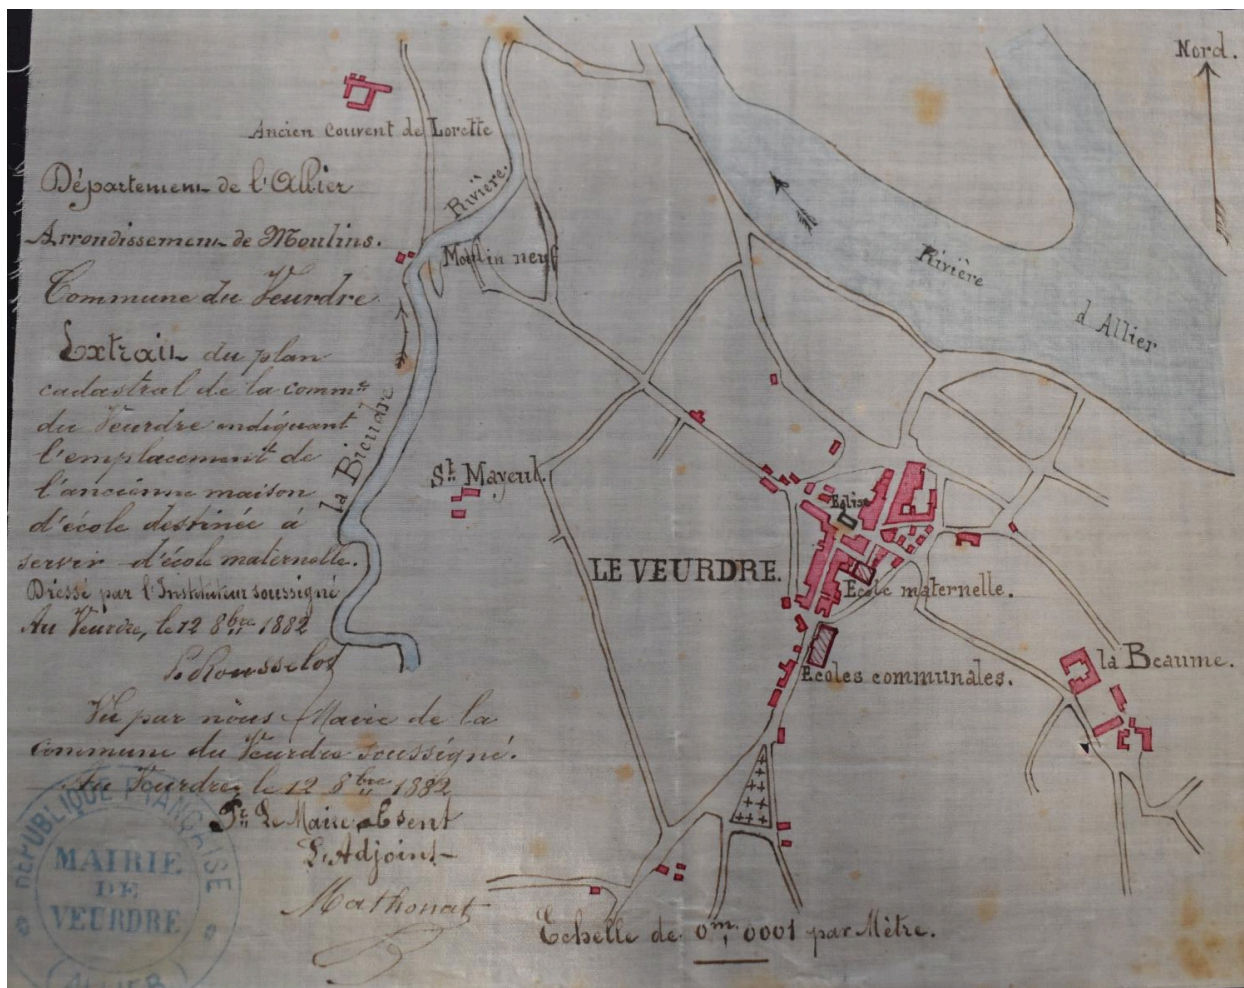 Nord.
Ancien Couvent de Lorette
Département de l'Allier
Arrondissement de Moulins.
Commune du Veurdre
Extrait du plan
cadastral de la comm^ne
du Veurdre indiquant
l'emplacement de
l'ancienne maison
d'école destinée à
servir d'école maternelle.
Dressé par l'Instituteur soussigné
Au Veurdre, le 12 8^bre 1882
P. Rousselot
Vu par nous Maire de la
commune du Veurdre soussigné.
Au Veurdre, le 12 8^bre 1882
P^r Le Maire absent
L'Adjoint
Mathonat
RÉPUBLIQUE FRANÇAISE
MAIRIE
DE
VEURDRE
(ALLIER)
Rivière
Moulin neuf
la Bieudre
S^t. Mayeul.
Rivière
d'Allier
Eglise
LE VEURDRE.
Ecole maternelle.
Ecoles communales.
la Beaume.
Echelle de 0^m, 0001 par Mètre.